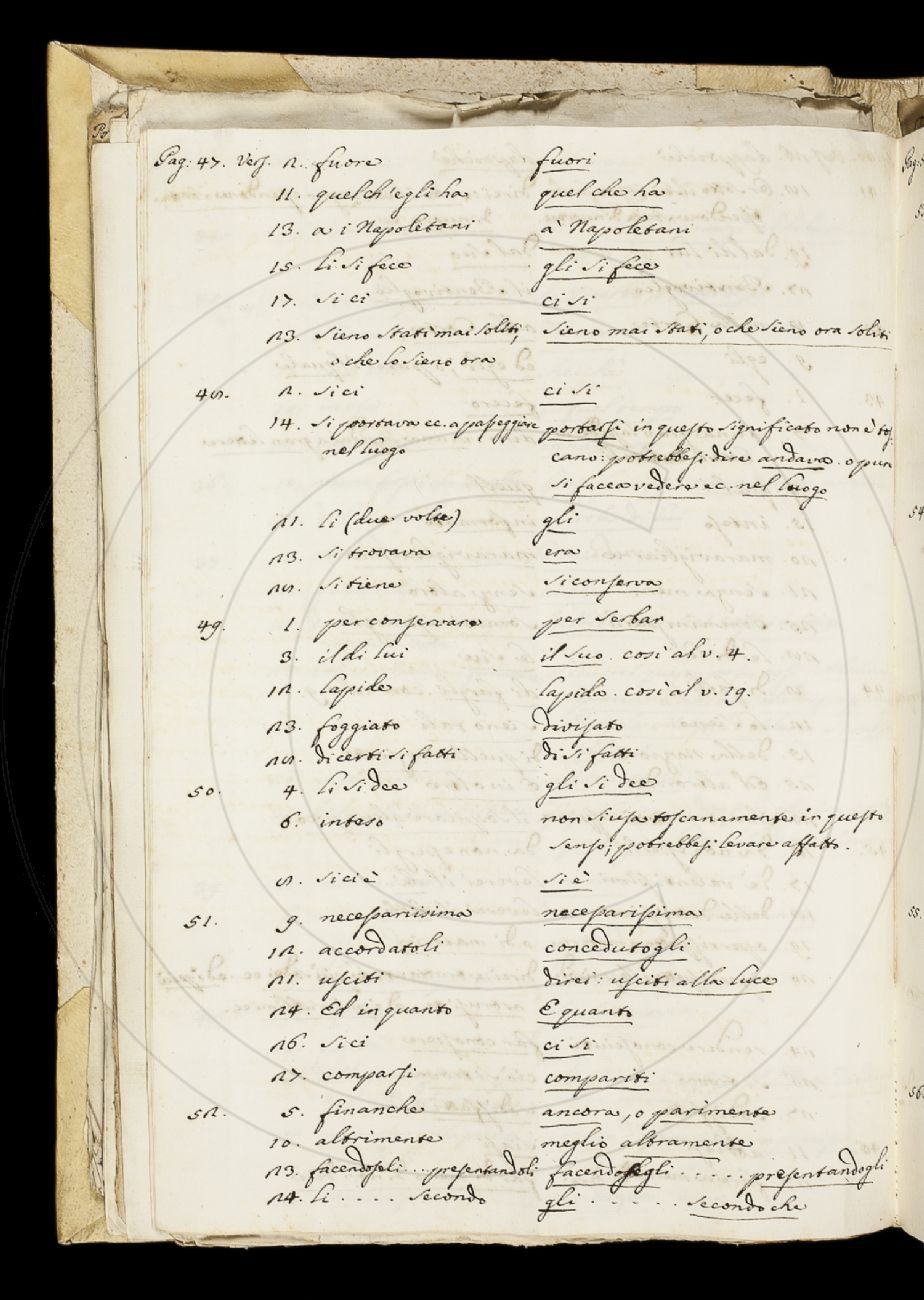 Pag: 47. Vers. 2. fuore fuori
11. quel ch'egli ha quel che ha
13. a i Napoletani a' Napoletani
15. li si fece gli si fece
17. si ci ci si
23. sieno stati mai soliti, sieno mai stati, o che sieno ora soliti
o che lo sieno ora
48. 2. si ci ci si
14. si portava ec. a passeggiare portarsi in questo significato non è tos:
nel luogo cano: potrebbesi dire andava. o pure
si facea vedere ec. nel luogo
21. li (due volte) gli
23. si trovava era
28. si tiene si conserva
49. 1. per conservare per serbar
3. il di lui il suo. così al v. 4.
12. lapide lapida. così al v. 19.
23. foggiato divisato
28. di certi si fatti di si fatti
50. 4. li si dee gli si dee
6. inteso non si usa toscanamente in questo
senso; potrebbesi levare affatto.
8. si ci è si è
51. 9. necessariisima necessarissima
12. accordatoli concedutogli
21. usciti direi: usciti alla luce
24. Ed in quanto E quanto
26. si ci ci si
27. comparsi compariti
52. 5. finanche ancora, o parimente
10. altrimente meglio altramente
23. facendoseli ... presentandoli facendosegli ..... presentandogli
24. li .... secondo gli ...... secondo che